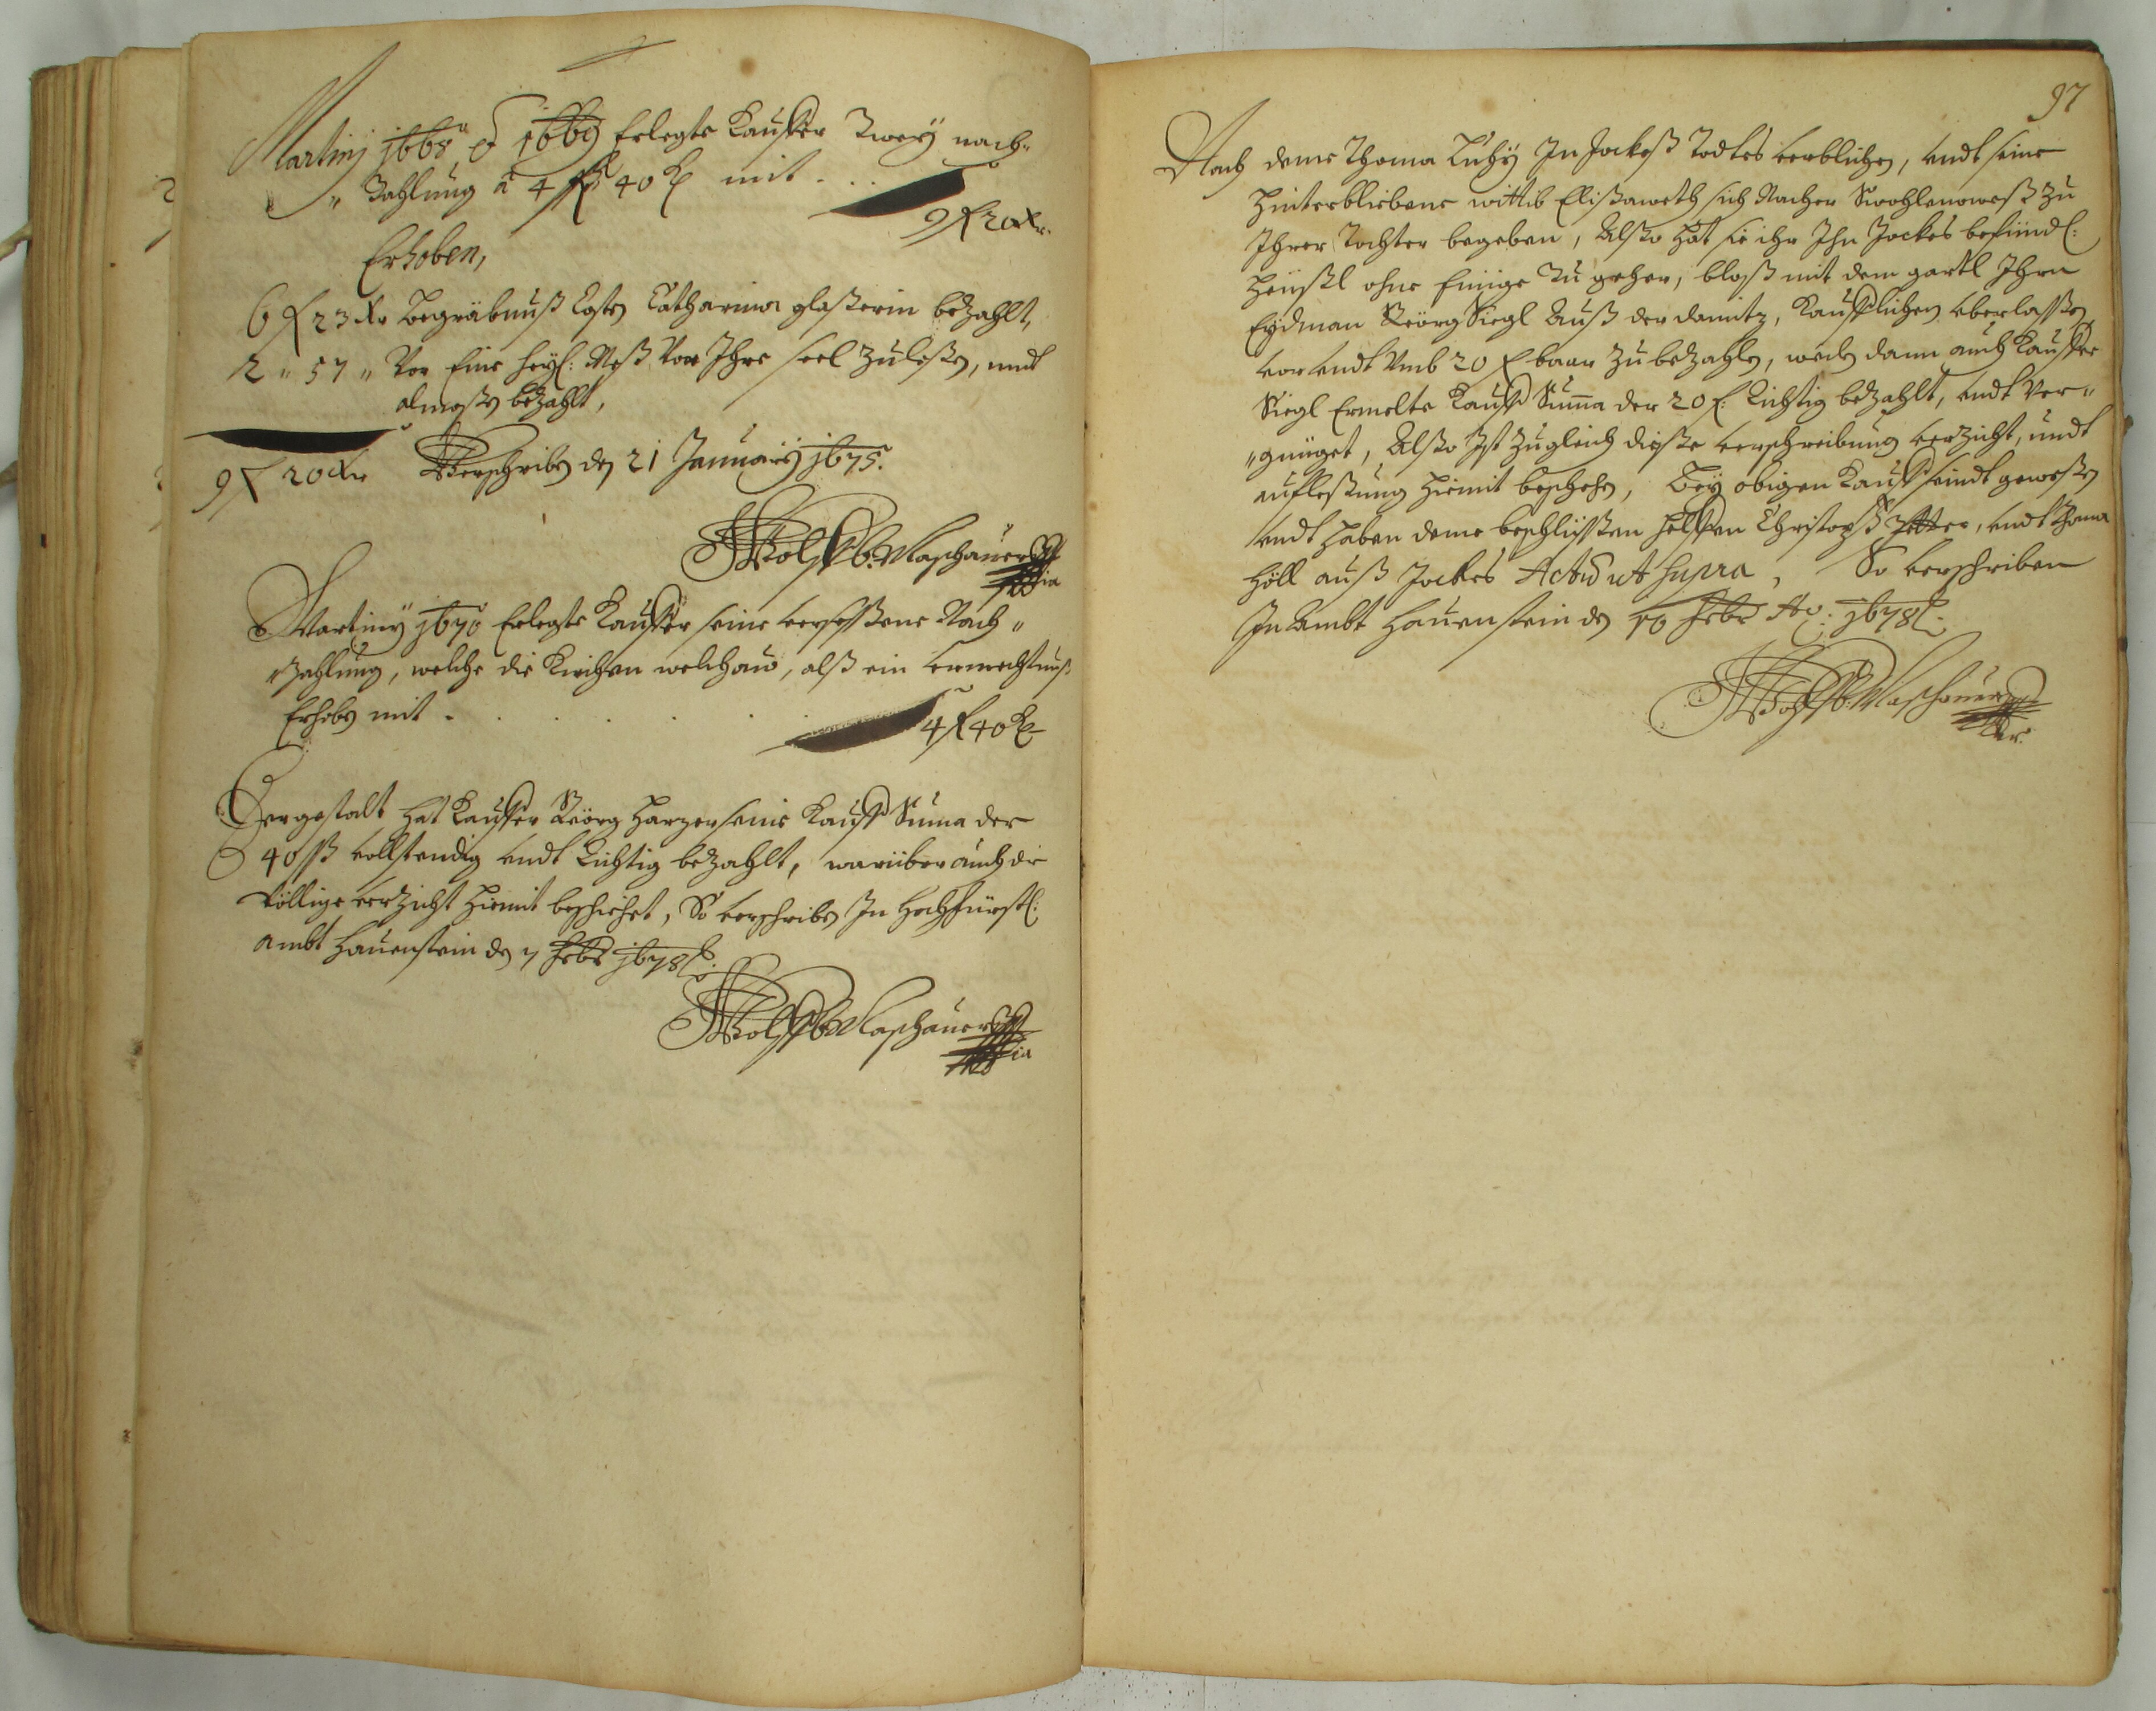 Martinj 1668 & 1669 Erlegte Kauffer Zwey nach„
„Zahlung a 4 ß 40 k mit . . .
9 f 20 xr.
Erhoben,
6 f 23 xr Begräbnuß Costen Catharina glaßerin bezahlt,
2 „ 57 „ Vor Eine heyl: Meß Vor Ihre seel zuleßen, undt
almoßen bezahlt,
9 f 20 xr Verschriben den 21 January 1675.
Wolff Maschauer
Martiny 1670 Erlegte Kauffer seine verfessene Nach„
„Zahlung, welche die Kirchen welchau, alß ein vermechtnuß
Erhoben mit . . . . . . 4 f 40 k
Dergestalt hat Kauffer Georg Harzer seine Kauff Suma der
40 ß vollstendig undt Richtig bezahlt, warüber auch die
Völlige verzicht hiemit beschiehet, So verschriben In Hochfürstl:
ambt Hauenstein den 7 Febr 1678
Wolff Maschauer
97
Nach deme Thoma Tuhy In Jockeß Todtes verblichen, undt seine
hinterbliebene wittib Elißaweth sich Nacher zu
Ihrer Tochter begeben, Alßo hat sie ihr Ihn Jockes befündl:
Heußl ohne Einige Zugeher, bloß mit dem gartl Ihren
Eydman Georg Siegl Auß der damitz, Kaufflichen überlassen,
vor undt Umb 20 f baar zu bezahlen, weilen dann auch Kauffer
Siegl Ermelte Kauff Suma der 20 f: Richtig bezahlt, undt Ver„
„gnüget, Alßo Ist zugleich dieße verschreibung verzicht, undt
aufleßung hiemit beschehen, Bey obigen Kauff seindt geweßen
undt haben deme beschlüssen helffen Christoph, undt Thoma
Höll auß Jockes Actum ut supra, So verschriben
In Ambt Hauenstein den 10 Febr Ao: 1678
Wolff Maschauer